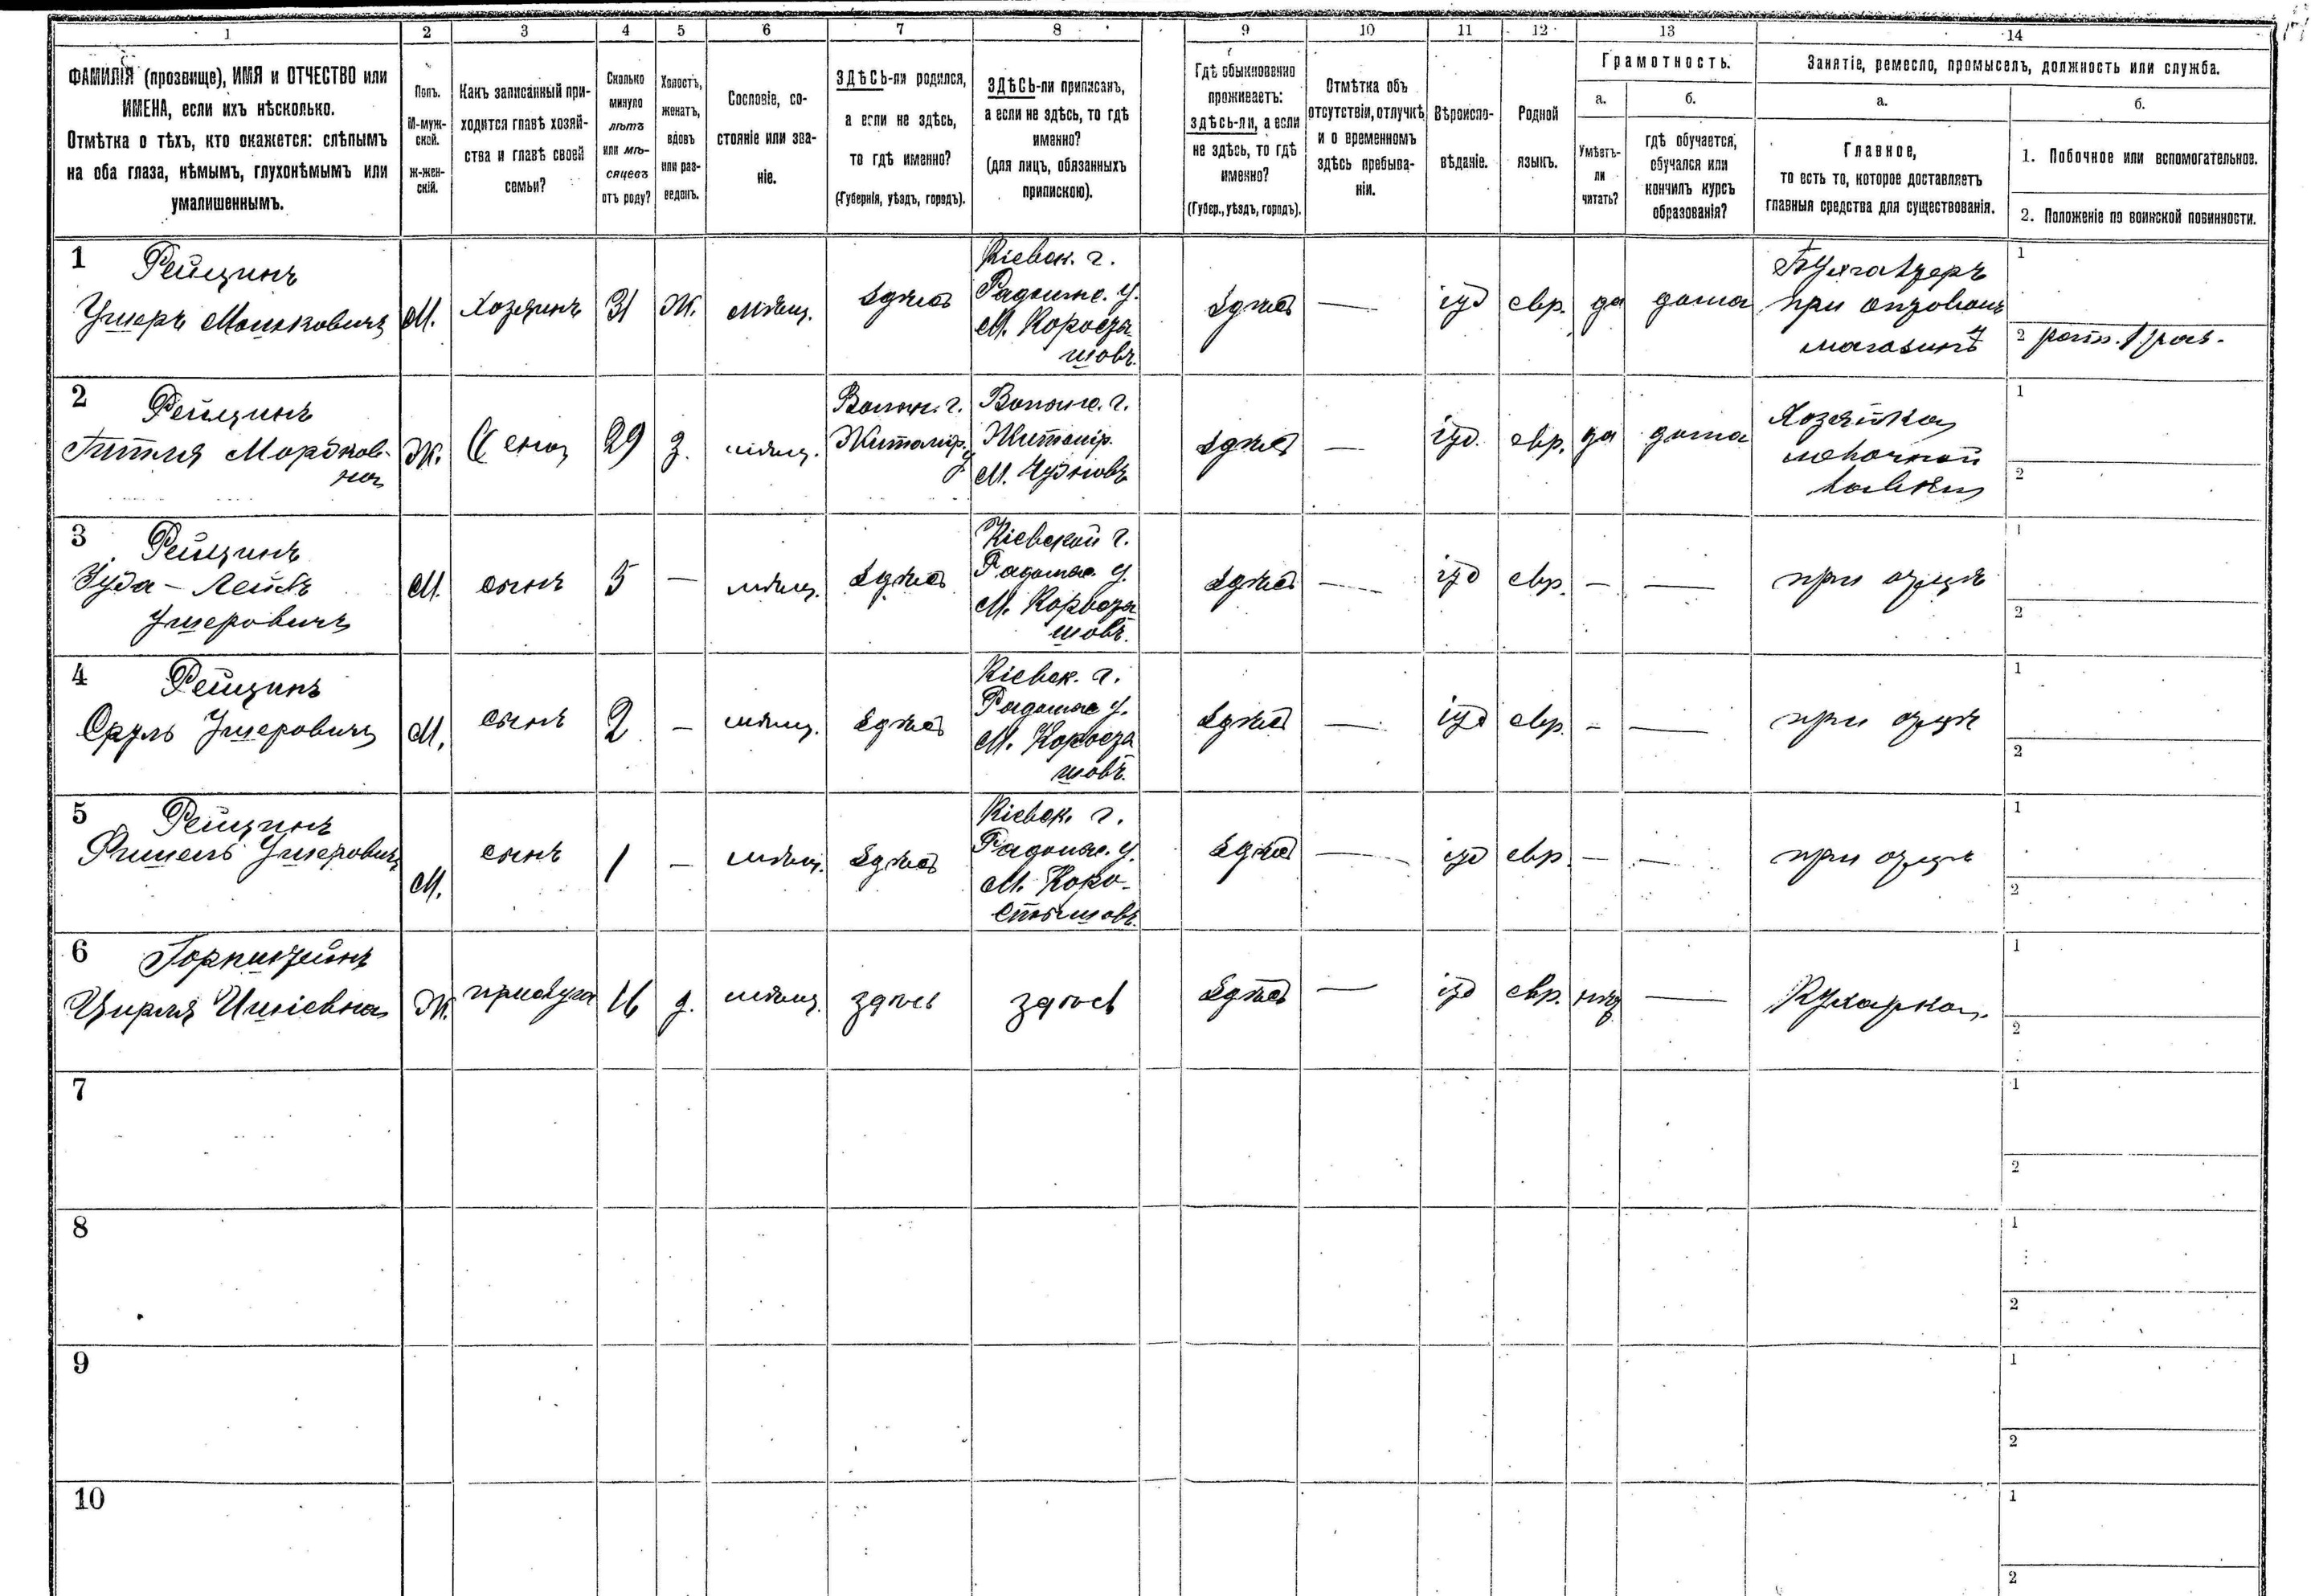 1 2 3 4 5 6 7 8 9 10 11 12 13 14
ФАМИЛІЯ (прозвище), ИМЯ и ОТЧЕСТВО или
ИМЕНА, если ихъ нѣсколько.
Отмѣтка о тѣхъ, кто окажется: слѣпымъ
на оба глаза, нѣмымъ, глухонѣмымъ или
умалишеннымъ.
Полъ.
М-муж-
ской.
Ж-жен-
скій.
Какъ записанный при-
ходится главѣ хозяй-
ства и главѣ своей
семьи?
Сколько
минуло
лѣтъ
или мѣ-
сяцевъ
отъ роду?
Холостъ,
женатъ,
вдовъ
или раз-
веденъ.
Сословіе, со-
стояніе или зва-
ніе.
ЗДѢСЬ-ли родился,
а если не здѣсь,
то гдѣ именно?
(Губернія, уѣздъ, городъ).
ЗДѢСЬ-ли приписанъ,
а если не здѣсь, то гдѣ
именно?
(для лицъ, обязанныхъ
припискою).
Гдѣ обыкновенно
проживаетъ:
здѣсь-ли, а если
не здѣсь, то гдѣ
именно?
(Губер., уѣздъ, городъ).
Отмѣтка объ
отсутствіи, отлучкѣ
и о временномъ
здѣсь пребыва-
ніи.
Вѣроиспо-
вѣданіе.
Родной
языкъ.
Грамотность.
а.
Умѣетъ-
ли
читать?
б.
гдѣ обучается,
обучался или
кончилъ курсъ
образованія?
Занятіе, ремесло, промыселъ, должность или служба.
а.
Главное,
то есть то, которое доставляетъ
главныя средства для существованія.
б.
1. Побочное или вспомогательное.
2. Положеніе по воинской повинности.
1
Рейцинъ
Ушеръ Мошковичъ
М.
Хозяинъ
31
Ж.
мѣщ.
Здѣсь
Кіевск. г.
Радомыс. у.
М. Коросты
шовъ.
Здѣсь
—
іуд
евр.
да
дома
Бухгалтеръ
при оптовомъ
магазинѣ
1
2 ратн. 1 раз.
2
Рейцинъ
Гитля Мордков-
на
Ж.
жена
29
з.
мѣщ.
Волын. г.
Житомір.
у
Волынс. г.
Житомір.
М. Чудновъ
Здѣсь
—
іуд.
евр.
да
дома
Хозяйка
мелочной
лавки
1
2
3
Рейцинъ
Іуда - Лейбъ
Ушеровичъ
М.
сынъ
5
—
мѣщ.
Здѣсь
Кіевской г.
Радомыс. у.
М. Коросты
шовъ.
Здѣсь
—
іуд
евр.
—
—
при отцѣ
1
2
4
Рейцинъ
Сруль Ушеровичъ
М.
сынъ
2
—
мѣщ.
Здѣсь
Кіевск. г.
Радомыс у.
М. Коросты
шовъ.
Здѣсь
—
іуд
евр.
—
—
при отцѣ
1
2
5
Рейцинъ
Фишель Ушеровичъ
М.
сынъ
1
—
мѣщ.
Здѣсь
Кіевск. г.
Радомыс. у.
М. Коро-
стышовъ.
Здѣсь
—
іуд
евр.
—
—
при отцѣ
1
2
6
Горнштейнъ
Цирля Ицковна
Ж.
прислуга
16
д.
мѣщ.
здѣсь
здѣсь
Здѣсь
—
іуд
евр.
нѣт
—
Кухарка.
1
2
7
1
2
8
1
2
9
1
2
10
1
2